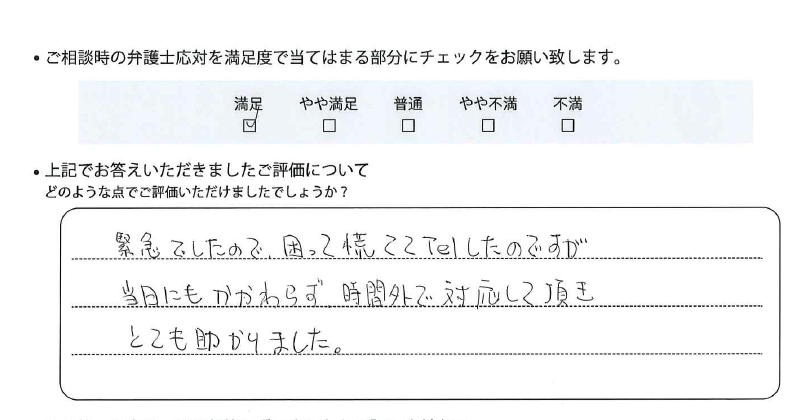 ・ご相談時の弁護士応対を満足度で当てはまる部分にチェックをお願い致します。
満足 やや満足 普通 やや不満 不満
☑ □ □ □ □
・上記でお答えいただきましたご評価について
どのような点でご評価いただけましたでしょうか？
緊急でしたので、困って慌ててTelしたのですが
当日にもかかわらず、時間外で対応して頂き
とても助かりました。